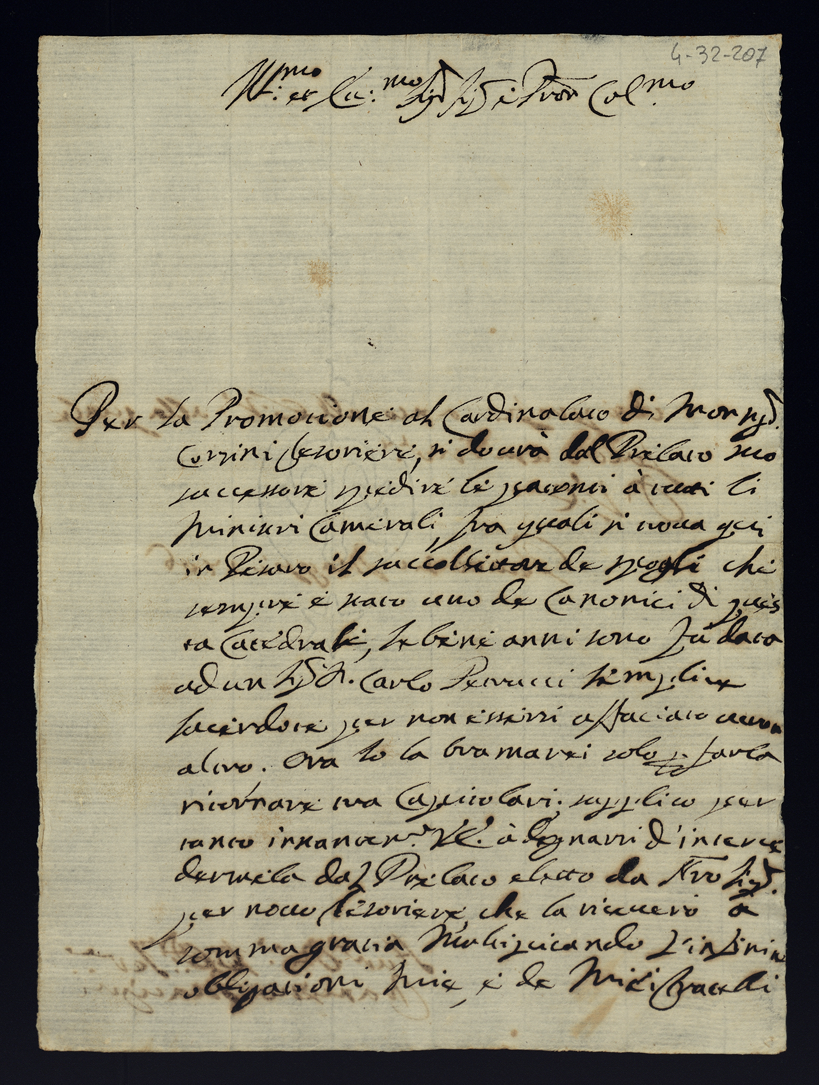 4-32-207
Ill.mo et Ecc.mo Sig.r Sig.r e Pron Col.mo
Per la Promozione al Cardinalato di Monsig.r
Corsini Tesoriere, si dovrà dal Prelato suo
successore spedire le patenti à tutti li
Ministri Camerali, fra quali si trova qui
in Pesaro il raccolitore de spogli che
sempre è stato uno de Canonici di ques
ta Catedrale, se bene anni sono fù data
ad un Sig.r D. Carlo Petrucci semplice
sacerdote per non essersi affaciato verun
altro. Ora Io la bramarei solo p. farla
ritornare tra Capitolari; supplico per
tanto instantem.te V.E. à degnarsi d'interce
dermela dal Prelato eletto da Nro Sig.r
per novo Tesoriere, che la riceverò à
somma gratia Multiplicando l'infinite
obligationi mie, e de Miei Fratelli